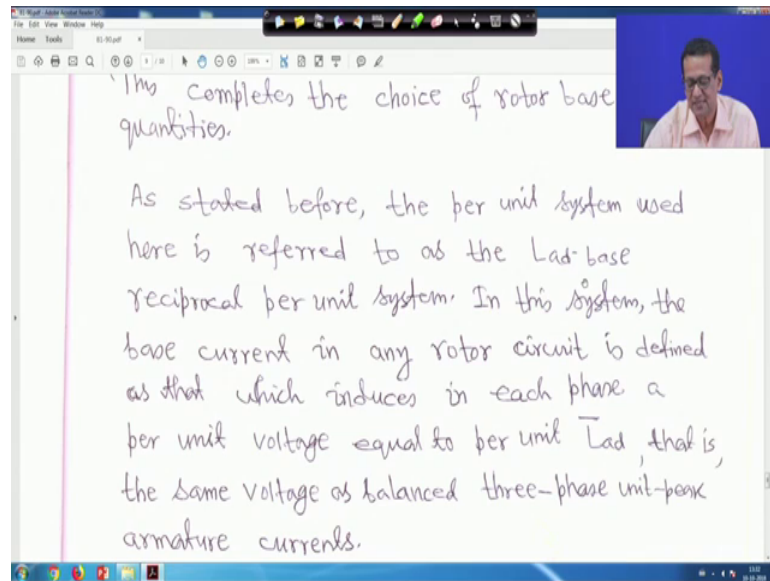 81-90.pdf - Adobe Acrobat Reader DC
File Edit View Window Help
Home Tools 81-90.pdf
This completes the choice of rotor base
quantities.
As stated before, the per unit system used
here is referred to as the Lad-base
reciprocal per unit system. In this system, the
base current in any rotor circuit is defined
as that which induces in each phase a
per unit voltage equal to per unit L̅ad, that is,
the same voltage as balanced three-phase unit-peak
armature currents.